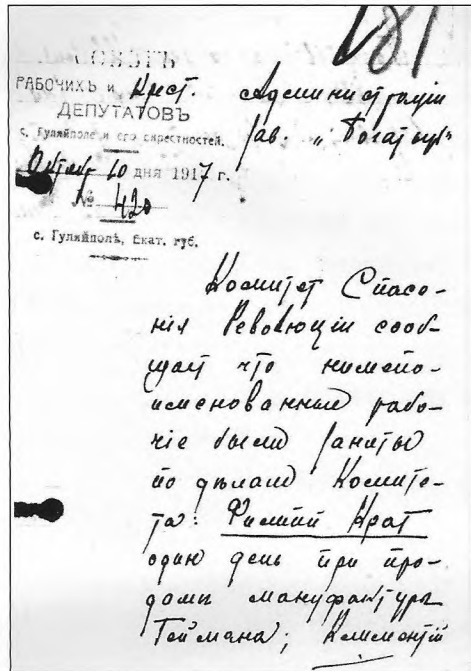 181
СОВѢТЪ
РАБОЧИХЪ и Крест.
ДЕПУТАТОВЪ
с. Гуляйполе и его окрестностей.
Октяб 10 дня 1917 г.
№ 420
с. Гуляйполь, Екат. губ.
Администраціи
зав. „Богатырь“
Комитет Спасе-
нія Революціи сооб-
щает что нижепо-
именованные рабо-
чіе были заняты
по дѣлам Комите-
та: Филипп Крат
один день при про-
дажи мануфактуры
Геймана; Климентій